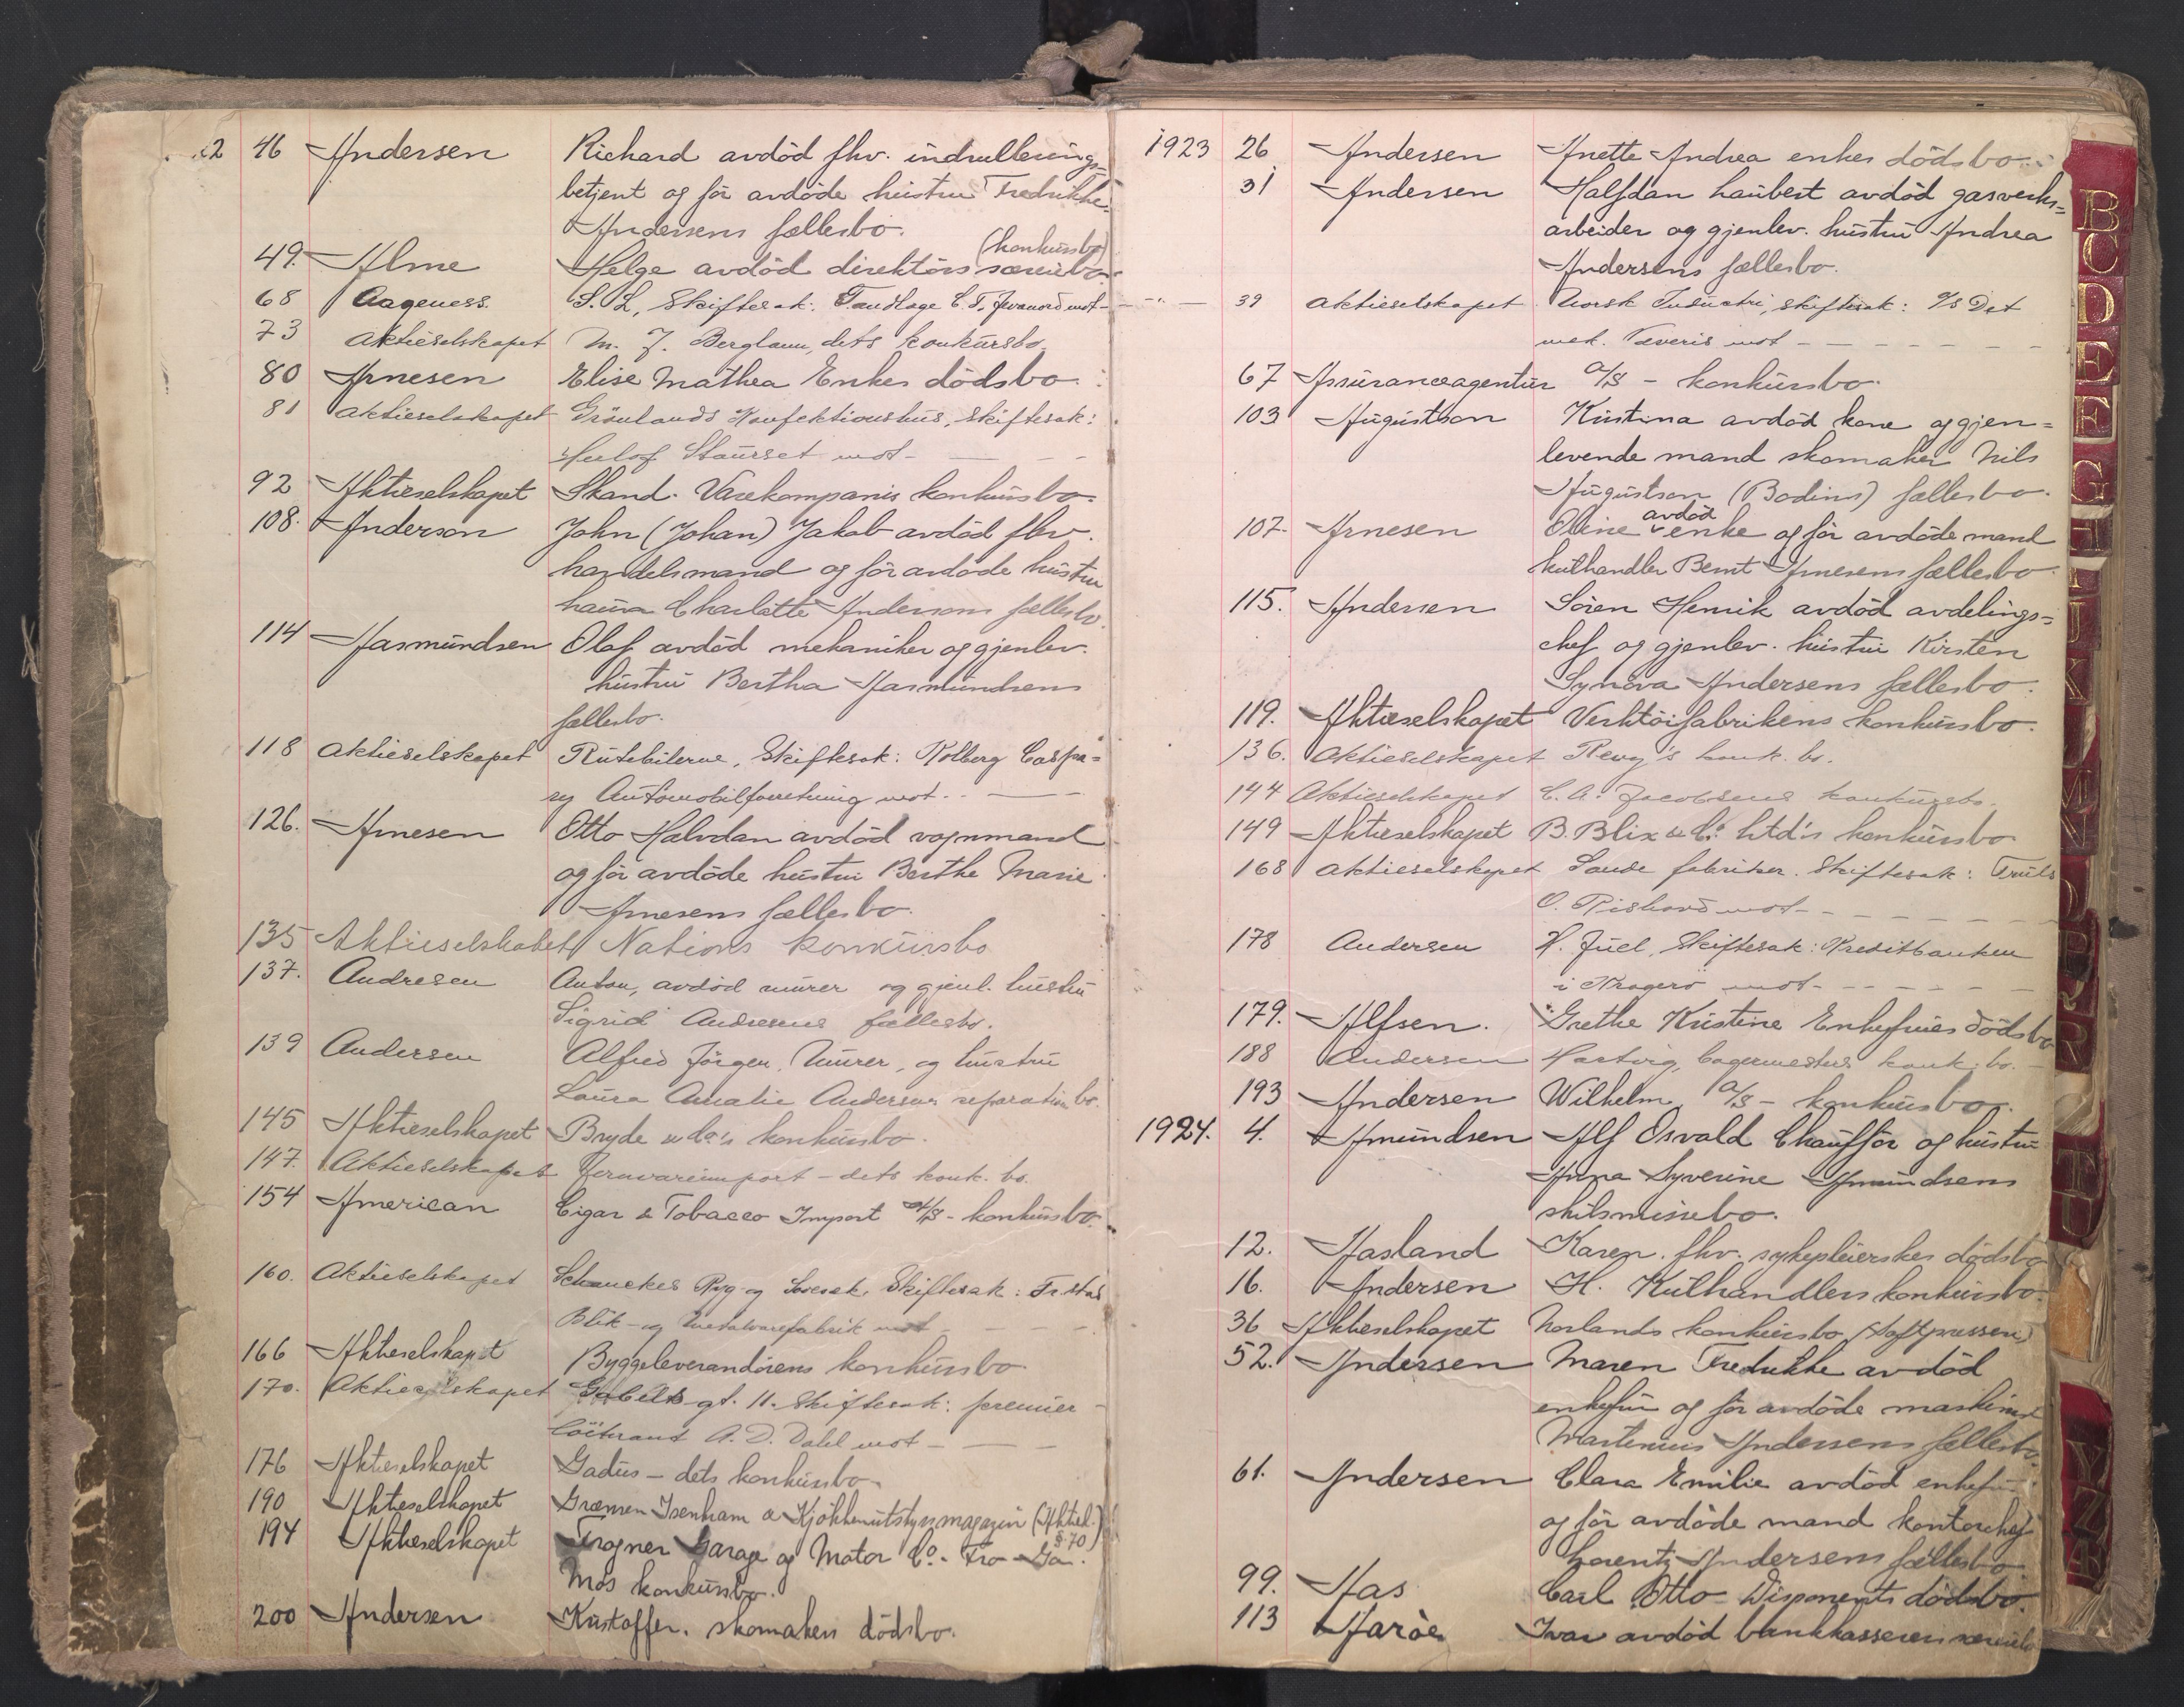 46 Andersen Richard avdød fhv. indrullerings-
betjent og før avdøde hustru Fredrikke
Andersens fællesbo.
49. Alme Helge avdød direktørs særniebo (konkursbo)
68 Aageness. S. L, Skiftesak: mot -
73 Aktieselskapet M. J. Berglann, dets konkursbo.
80 Arnesen Elise Mathea Enkes dödsbo.
81 Aktieselskapet Grönlands Konfektionshus, Skiftesak:
mot -
92 Aktieselskapet Skand. Varekompanis konkursbo.
108. Anderson John (Johan) Jakob avdød fhv.
handelsmand og før avdøde hustru
Charlotte Andersons fællesbo.
114 Aasmundsen Olaf avdød mekaniker og gjenlev.
hustru Bertha Aasmundsens
fællesbo.
118 Aktieselskapet Rutebilerne, Skiftesak: Kolberg Caspa=
ry Automobilforretning mot -
126. Arnesen Otto Halvdan avdød vognmand
og før avdøde hustru Berthe Marie
Arnesens fællesbo.
135 Aktieselskabet Nations konkursbo
137. Andresen Anton, avdød murer og gjenl. hustru
Sigrid Andresens fællesbo.
139 Andersen Alfred Jörgen, Murer, og hustru
Laura Amalie Andersens separationsbo.
145 Aktieselskapet Bryde & Co's konkursbo.
147. Aktieselskapet Jernvareimport - dets konk. bo.
154 American Cigar & Tobacco Import A/S - konkursbo.
160. Aktieselskapet Ryg- og Skiftesak: Fr.stad
Blik- og Metalvarefabrik mot -
166 Aktieselskapet Byggeleverandørens konkursbo
170. Aktieselskapet Gabels gt. 11. Skiftesak: premier-
löitnant A. D. Dahl mot -
176 Aktieselskapet Gadus - dets konkursbo
190 Aktieselskapet Grænsen Isenkram & Kjøkkenutstyrsmagasin (Aktiel. § 70)
194 Aktieselskapet Frogner Garage og Motor Co. - Fro - Ga -
Mos konkursbo.
200 Andersen Kristoffer. skomakers dödsbo.
1923 26 Andersen Anette Andrea enkes dödsbo.
31 Andersen Halfdan Laubert avdød gasverks=
arbeider og gjenlev. hustru Andrea
Andersens fællesbo.
39 Aktieselskapet Norsk Industri, skiftesak: A/S Det
mek. Væveris mot -
67 Assuranceagentur A/S - konkursbo.
103 Augustson Kristina avdød kone og gjen=
levende mand skomaker Nils
Augustson (Bodins) fællesbo.
107. Arnesen Oline avdød enke og før avdøde mand
kulhandler Bernt Arnesens fællesbo
115. Andersen Sören Henrik avdød avdelings=
chef og gjenlev. hustru Kirsten
Synøva Andersens fællesbo.
119. Aktieselskapet Verktöifabrikens konkursbo.
136. Aktieselskapet Revy's konk. bo.
144 Aktieselskapet C. A. Jacobsens konkursbo.
149 Aktieselskapet B. Blix & Co. Ltd's konkursbo
168 Aktieselskapet Sande fabriker. Skiftesak: Truls
O. mot -
178 Andersen H. Juel, Skiftesak: Kreditbanken
i Kragerö mot -
179. Alfsen. Grethe Kristine Enkefrues dödsbo
188 Andersen Hartvig, Lagermesters konk. bo.
193 Andersen Wilhelm, A/S - konkursbo.
1924. 4. Amundsen Alf Osvald Chauffør og hustru
Anna Syverine Amundsens
skilsmissebo.
12. Aasland Karen. fhv. sykepleierskes dødsbo
16. Andersen H. Kulhandlers konkursbo.
36 Aktieselskapet Norlands konkursbo (Saftpressen)
52. Andersen Maren Fredrikke avdød
enkefru og før avdøde maskinist
Martinius Andersens fællesbo.
61. Andersen Clara Emilie avdød enkefru
og før avdøde mand kontorchef
Lorentz Andersens fællesbo.
99. Aas Carl Otto Disponents dödsbo.
113 Aarøe Ivar avdød bankkasserers særniebo
B
C
D
E
F
G
H
I
J
K
L
M
N
O
P
R
T
U
Y
Z
Æ